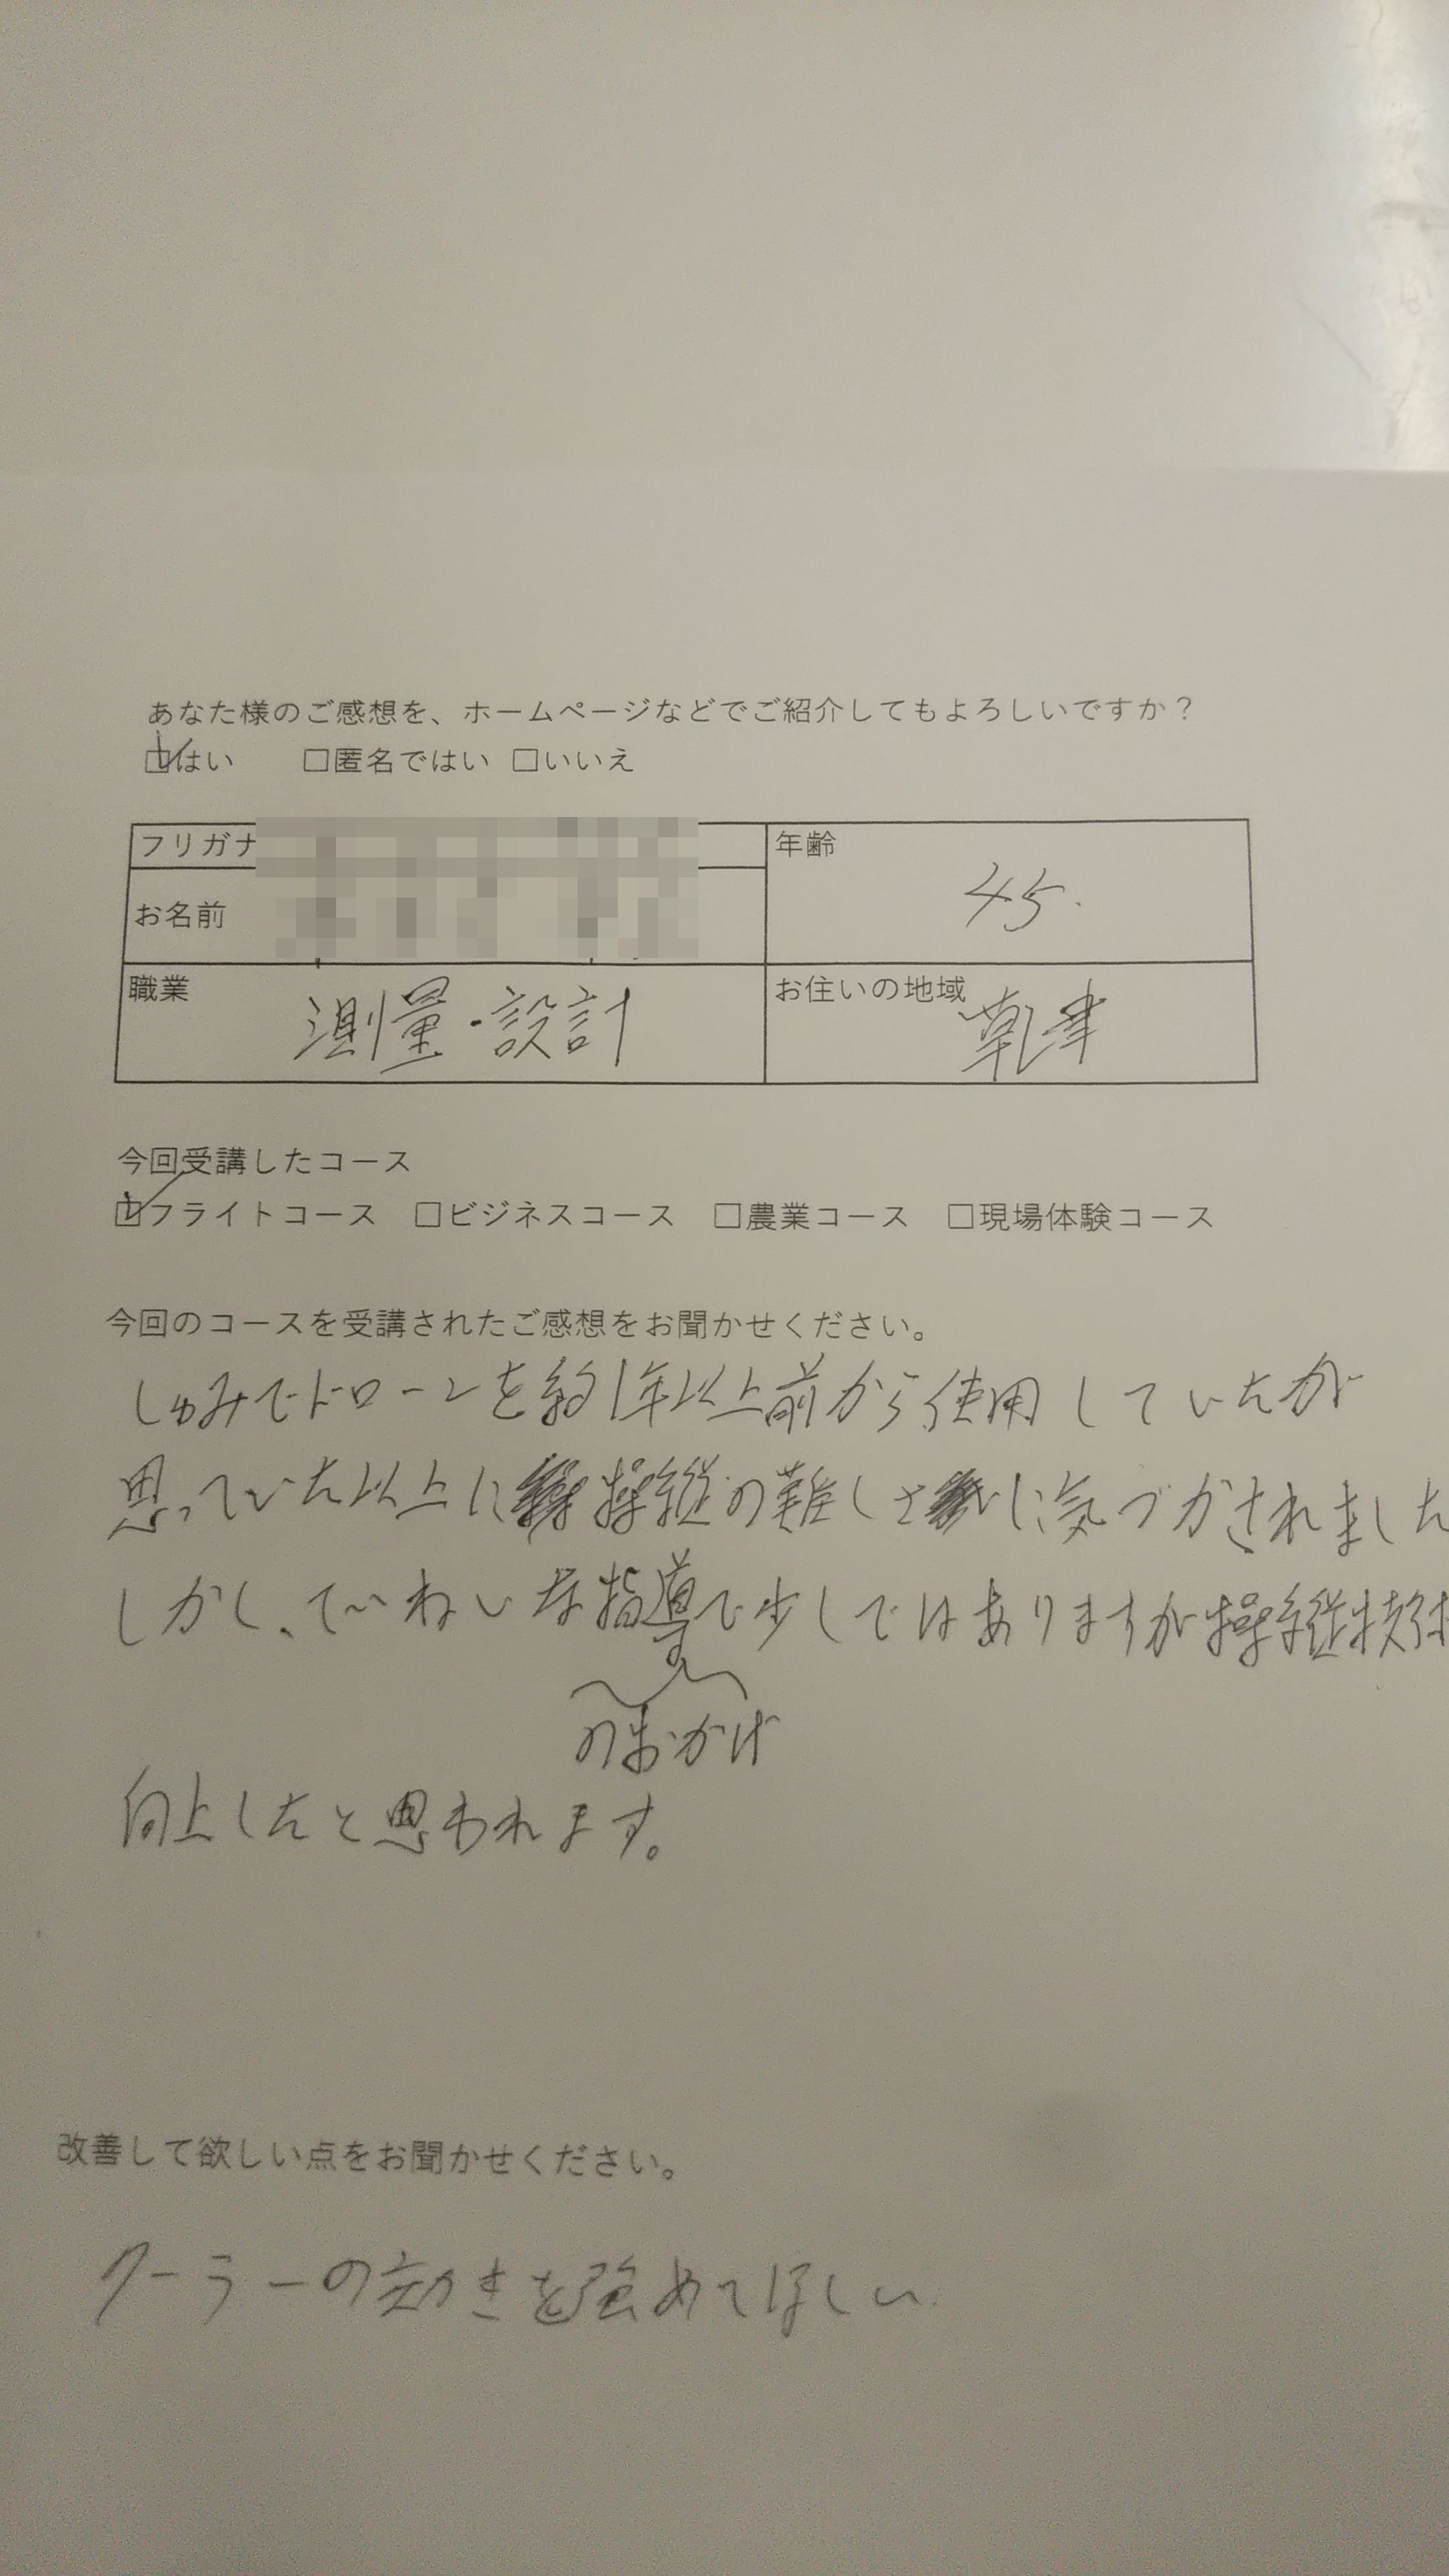 あなた様のご感想を、ホームページなどでご紹介してもよろしいですか？
☑はい　□匿名ではい　□いいえ
フリガナ
お名前
年齢
45.
職業
測量・設計
お住いの地域
草津
今回受講したコース
☑フライトコース　□ビジネスコース　□農業コース　□現場体験コース
今回のコースを受講されたご感想をお聞かせください。
しゅみでドローンを約1年以上前から使用していたが
思っていた以上に操縦の難しさに気づかされました
しかし、ていねいな指導で少しではありますが操縦技術
のおかげ
向上したと思われます。
改善して欲しい点をお聞かせください。
クーラーの効きを強めてほしい